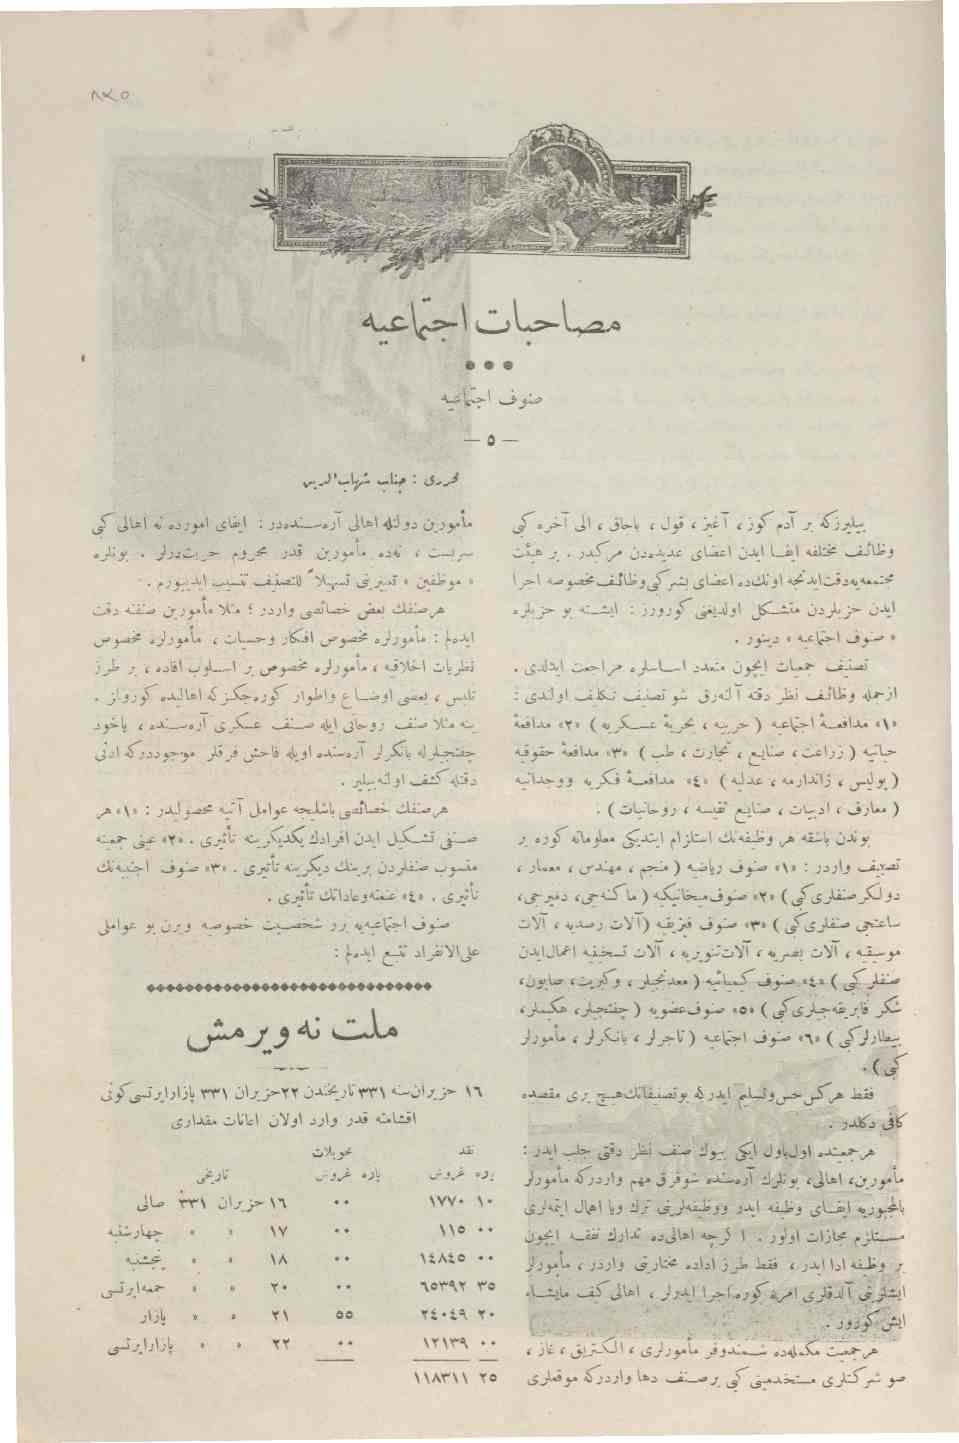 ٨٢٥
مصاحبات اجتماعیه
صنوف اجتماعیه
— ٥ —
محرری : جناب شهاب الدین
بیلیرزكه بر آدم كوز ، آغیز ، قول ، باجاق ، الی آخره كبی
وظائف مختلفه ایفا ایدن اعضای عدیده‌دن مركبدر . بر هیئت
مجتمعه‌یه دقت ایدنجه اونك‌ده اعضای بشر كبی وظائف مخصوصه اجرا
ایدن حزبلردن متشكل اولدیغنی كورورز : ایشته بو حزبلره
« صنوف اجتماعیه » دینور .
تصنیف جمعیات ایچون متعدد اساسلره مراجعت ایدلدی .
ازجمله وظائف نظر دقته آلنه‌رق شو تصنیف تكلیف اولندی :
«١» مدافعهٔ اجتماعیه ( حربیه ، بحریهٔ عسكریه ) «٢» مدافعهٔ
حیاتیه ( زراعت ، صنایع ، تجارت ، طب ) «٣» مدافعهٔ حقوقیه
( پولیس ، ژاندارمه ، عدلیه ) «٤» مدافعهٔ فكریه ووجدانیه
( معارف ، ادبیات ، صنایع نفیسه ، روحانیات ) .
بوندن باشقه هر وظیفه‌نك استلزام ایتدیكی معلوماته كوره بر
تصنیف واردر : «١» صنوف ریاضیه ( منجم ، مهندس ، معمار ،
دولكر صنفلری كبی ) «٢» صنوف میخانیكیه ( ماكنه‌جی ، دمیرجی ،
ساعتجی صنفلری كبی ) «٣» صنوف فیزیقیه ( آلات رصدیه ، آلات
موسیقیه ، آلات بصریه ، آلات تنویریه ، آلات تسخینیه اعمال ایدن
صنفلر كبی ) «٤» صنوف كیمیائیه ( معدنجیلر ، وكبریت ، صابون ،
شكر فابریقه‌جیلری كبی ) «٥» صنوف عضویه ( چفتجیلر ، هكیملر ،
بیطارلر كبی ) «٦» صنوف اجتماعیه ( تاجرلر ، بانكرلر ، مأمورلر
كبی ) .
فقط هركس حس وتسلیم ایدركه بو تصنیفاتك هیچ بری مقصده
كافی دكلدر .
هر جمعیتده اول باول ایكی بیوك صنف نظر دقتی جلب ایدر :
مأمورین ، اهالی ، بونلرك آره‌سنده شو فرق مهم واردركه مأمورلر
بالمجبوریه ایفای وظیفه ایدر ووظیفه‌لرینی ترك ویا اهمال ایتمه‌لری
مستلزم مجازات اولور . اكرچه اهالی‌ده تدارك نفقه ایچون
بر وظیفه ادا ایدر ، فقط طرز اداده مختاریتی واردر ، مأمورلر
ایشلرینی آلدقلری امره كوره اجرا ایدرلر ، اهالی كیف مایشاء
ایش كورور .
هر جمعیت مكمله‌ده شمندوفر مأمورلری ، الكتریق ، غاز ،
صو شركتلری مستخدمینی كبی بر صنف دها واردركه موقعلری
مأمورین دولتله اهالی آره‌سنده‌در : ایفای امورده نه اهالی كبی
سربست ، نه‌ده مأمورین قدر محروم حریتدرلر . بونلره
« موظفین » تعبیرینی تسهیلاً للتصنیف تنسیب ایدییورم .
هر صنفك بعض خصائصی واردر ؛ مثلا مأمورین صنفنه دقت
ایده‌لم : مأمورلره مخصوص افكار وحسیات ، مأمورلره مخصوص
نظریات اخلاقیه ، مأمورلره مخصوص بر اسلوب افاده ، بر طرز
تلبس ، بعضی اوضاع واطوار كوره‌جكز كه اهالیده كورولمز .
ینه مثلا صنف روحانی ایله صنف عسكری آره‌سنده ، یاخود
چفتجیلرله بانكرلر آره‌سنده اویله فاحش فرقلر موجوددركه ادنی
دقتله كشف اولنه‌بیلیر .
هر صنفك خصائصی باشلیجه عوامل آتیه محصولیدر : «١» هر
صنفی تشكیل ایدن افرادك یكدیكرینه تأثیری . «٢» عینی جمعیته
منسوب صنفلردن برینك دیكرینه تأثیری . «٣» صنوف اجنبیه‌نك
تأثیری . «٤» عنعنه وعاداتك تأثیری .
صنوف اجتماعیه‌یه برر شخصیت خصوصیه ویرن بو عواملی
علی الانفراد تتبع ایده‌لم :
ملت نه ویرمش
١٦ حزیران سنه ٣٣١ تاریخندن ٢٢ حزیران ٣٣١ پازارایرتسی كونی
اقشامنه قدر وارد اولان اعانات مقداری
نقد تحویلات
پاره غروش پاره غروش تاریخی
١٠ ١٧٧٠ ٠٠ ١٦ حزیران ٣٣١ صالی
٠٠ ١١٥ ٠٠ ١٧ » » چهارشنبه
٠٠ ١٤٨٤٥ ٠٠ ١٨ » » پنجشنبه
٣٥ ٦٥٣٩٢ ٠٠ ٢٠ » » جمعه‌ایرتسی
٢٠ ٢٤٠٤٩ ٥٥ ٢١ » » پازار
٠٠ ١٢١٣٩ ٠٠ ٢٢ » » پازارایرتسی
٢٥ ١١٨٣١١